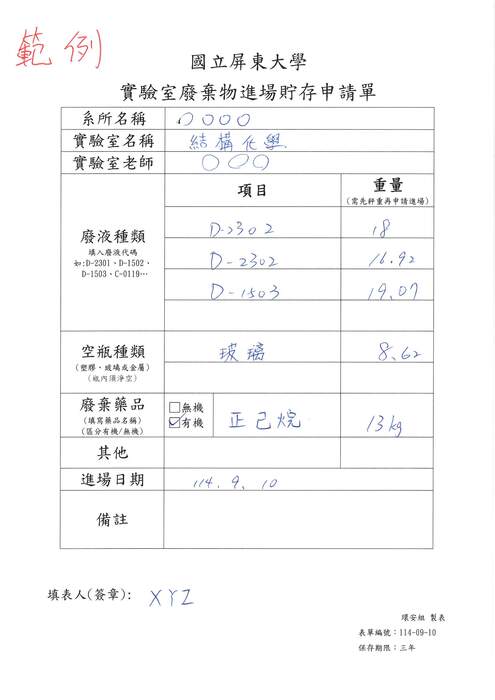 範例
國立屏東大學
實驗室廢棄物進場貯存申請單
系所名稱 0000
實驗室名稱 結構化學.
實驗室老師 000
廢液種類
填入廢液代碼
如:D-2301、D-1502、
D-1503、C-0119…
項目 重量
(需先秤重再申請進場)
D-2302 18
D-2302 16.92
D-1503 19.07
空瓶種類
(塑膠,玻璃或金屬)
(瓶內須淨空)
玻璃 8.62
廢棄藥品
(填寫藥品名稱)
(區分有機/無機)
□無機
☑有機
正己烷 13kg
其他
進場日期 114.9.10
備註
填表人(簽章): XYZ
環安組 製表
表單編號:114-09-10
保存期限:三年